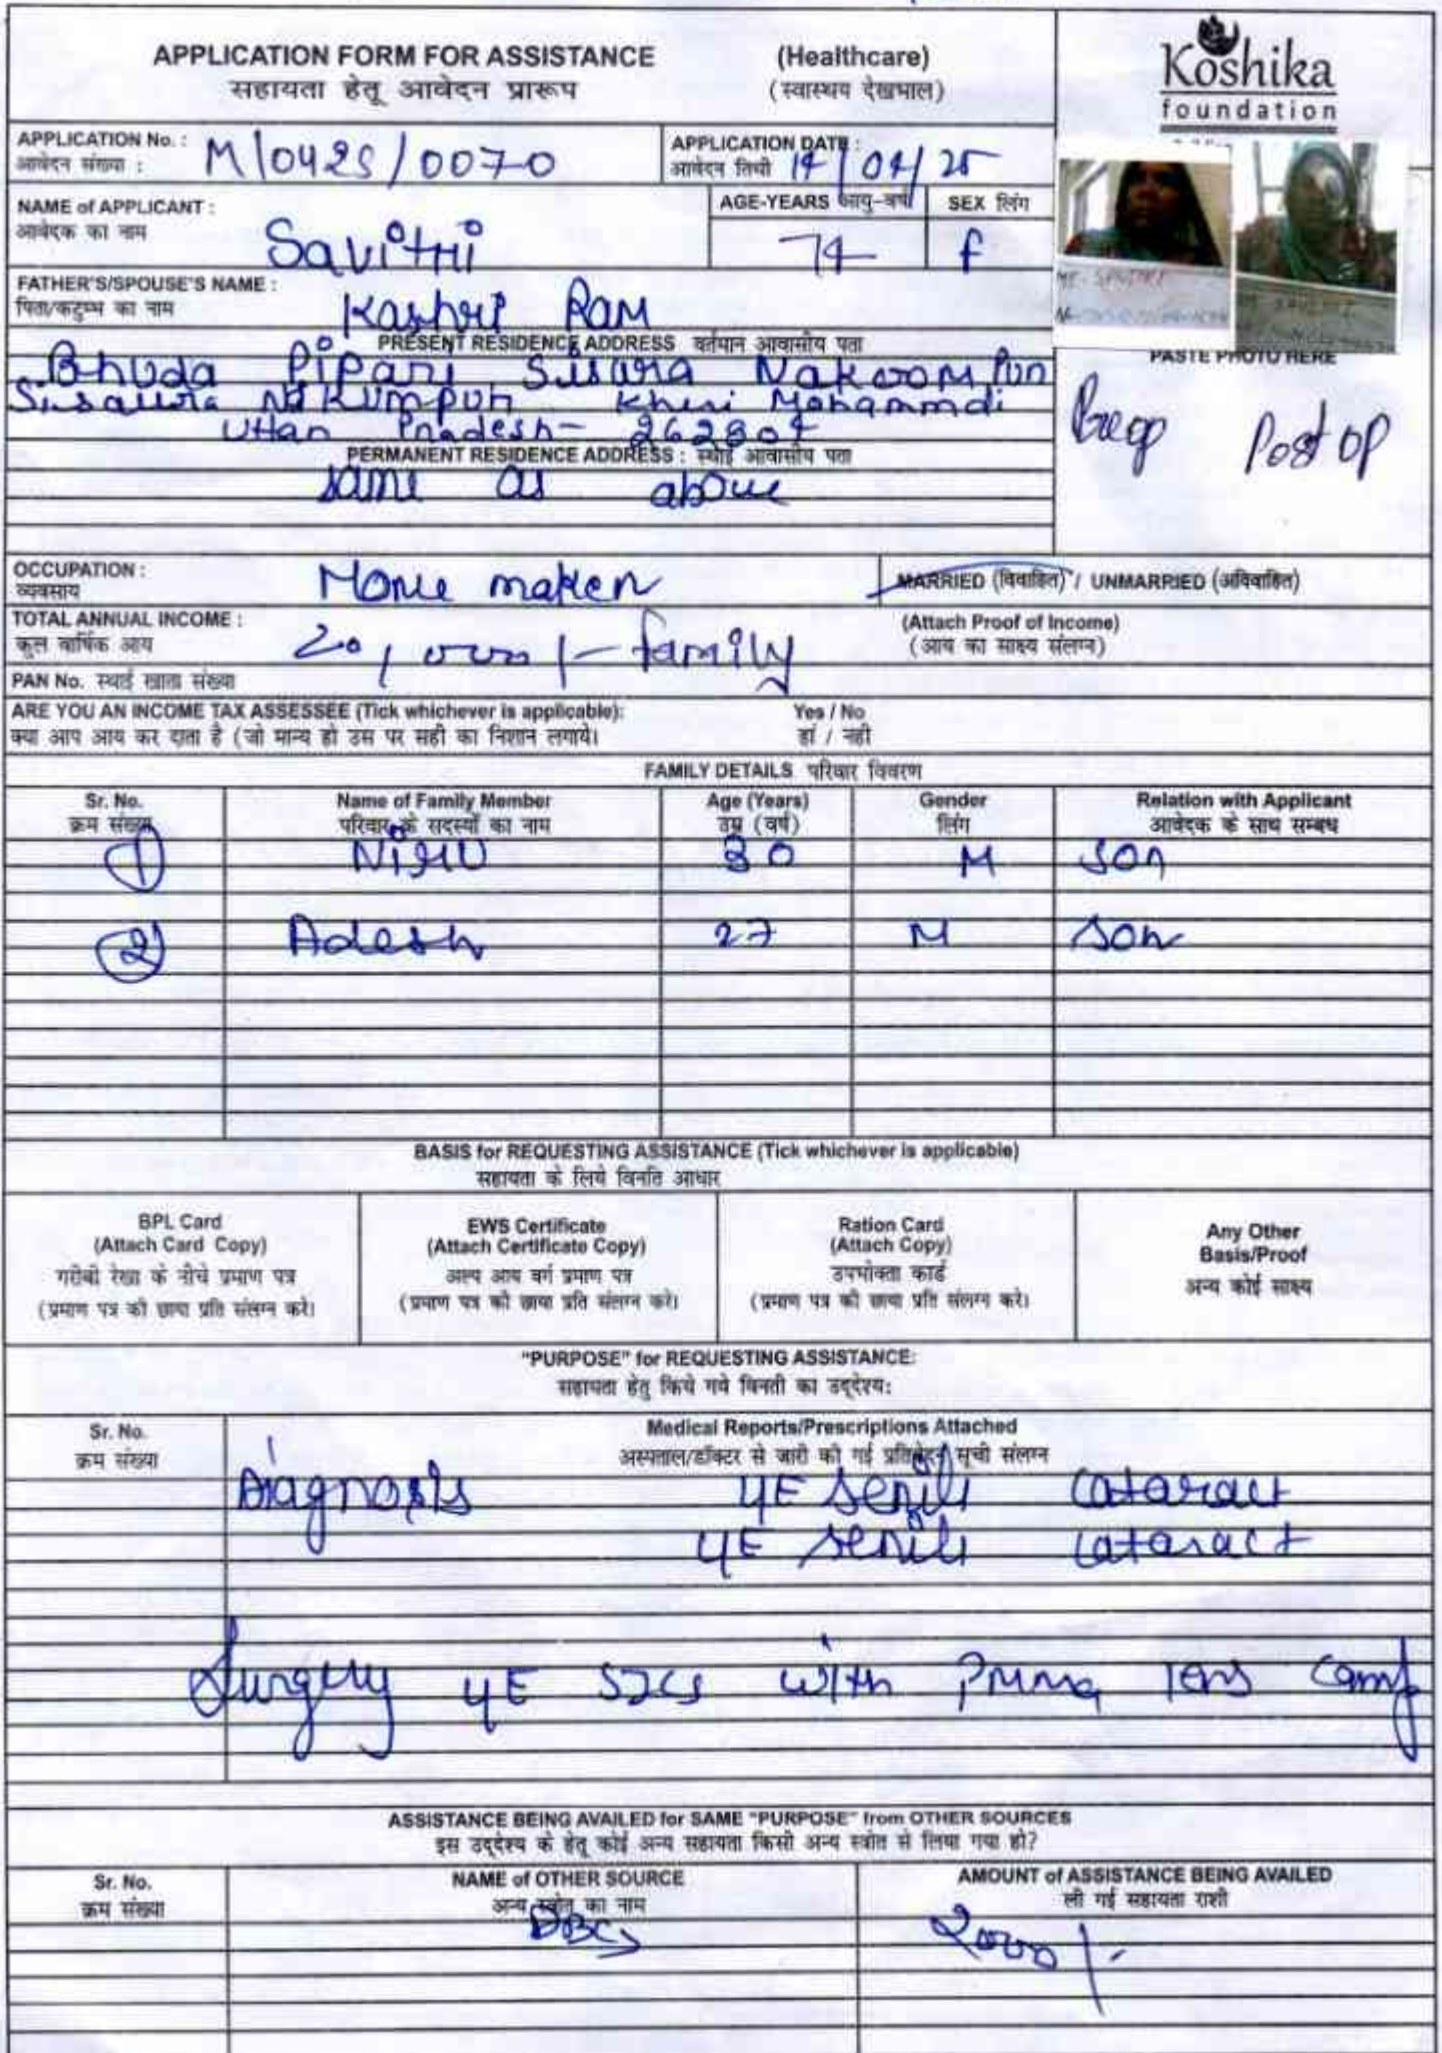 APPLICATION FORM FOR ASSISTANCE (Healthcare)
सहायता हेतू आवेदन प्रारूप (स्वास्थय देखभाल)
Koshika
foundation
APPLICATION No. : M/0425/0070
आवेदन संख्या :
APPLICATION DATE : 14/04/25
आवेदन तिथी
NAME of APPLICANT : Savitri
आवेदक का नाम
AGE-YEARS आयु-वर्ष 74
SEX लिंग F
FATHER'S/SPOUSE'S NAME : Ram
पिता/कटुम्भ का नाम
PRESENT RESIDENCE ADDRESS वर्तमान आवासीय पता
Bhuda Pipari
Uttar Pradesh-
PERMANENT RESIDENCE ADDRESS : स्थाई आवासीय पता
same as above
PASTE PHOTO HERE
Preop Post op
OCCUPATION : Home maker
व्यवसाय
MARRIED (विवाहित) / UNMARRIED (अविवाहित)
TOTAL ANNUAL INCOME : 20,000/- family
कुल वार्षिक आय
(Attach Proof of Income)
(आय का साक्ष्य संलग्न)
PAN No. स्थाई खाता संख्या
ARE YOU AN INCOME TAX ASSESSEE (Tick whichever is applicable): Yes / No
क्या आप आय कर दाता है (जो मान्य हो उस पर सही का निशान लगाये। हां / नही
FAMILY DETAILS परिवार विवरण
Sr. No. Name of Family Member Age (Years) Gender Relation with Applicant
क्रम संख्या परिवार के सदस्यों का नाम उम्र (वर्ष) लिंग आवेदक के साथ सम्बध
1 30 M son
2 Adesh 27 M son
BASIS for REQUESTING ASSISTANCE (Tick whichever is applicable)
सहायता के लिये विनति आधार
BPL Card
(Attach Card Copy)
गरीबी रेखा के नीचे प्रमाण पत्र
(प्रमाण पत्र की छाया प्रति संलग्न करे।
EWS Certificate
(Attach Certificate Copy)
अल्प आय वर्ग प्रमाण पत्र
(प्रमाण पत्र की छाया प्रति संलग्न करे।
Ration Card
(Attach Copy)
उपभोक्ता कार्ड
(प्रमाण पत्र की छाया प्रति संलग्न करे।
Any Other
Basis/Proof
अन्य कोई साक्ष्य
"PURPOSE" for REQUESTING ASSISTANCE:
सहायता हेतु किये गये विनती का उद्देश्य:
Sr. No. Medical Reports/Prescriptions Attached
क्रम संख्या अस्पताल/डॉक्टर से जारी की गई प्रतिवेदन सूची संलग्न
Diagnosis cataract
cataract
Surgery SICS with lens camp
ASSISTANCE BEING AVAILED for SAME "PURPOSE" from OTHER SOURCES
इस उद्देश्य के हेतू कोई अन्य सहायता किसी अन्य स्त्रोत से लिया गया हो?
Sr. No. NAME of OTHER SOURCE AMOUNT of ASSISTANCE BEING AVAILED
क्रम संख्या अन्य स्त्रोत का नाम ली गई सहायता राशी
2000/-